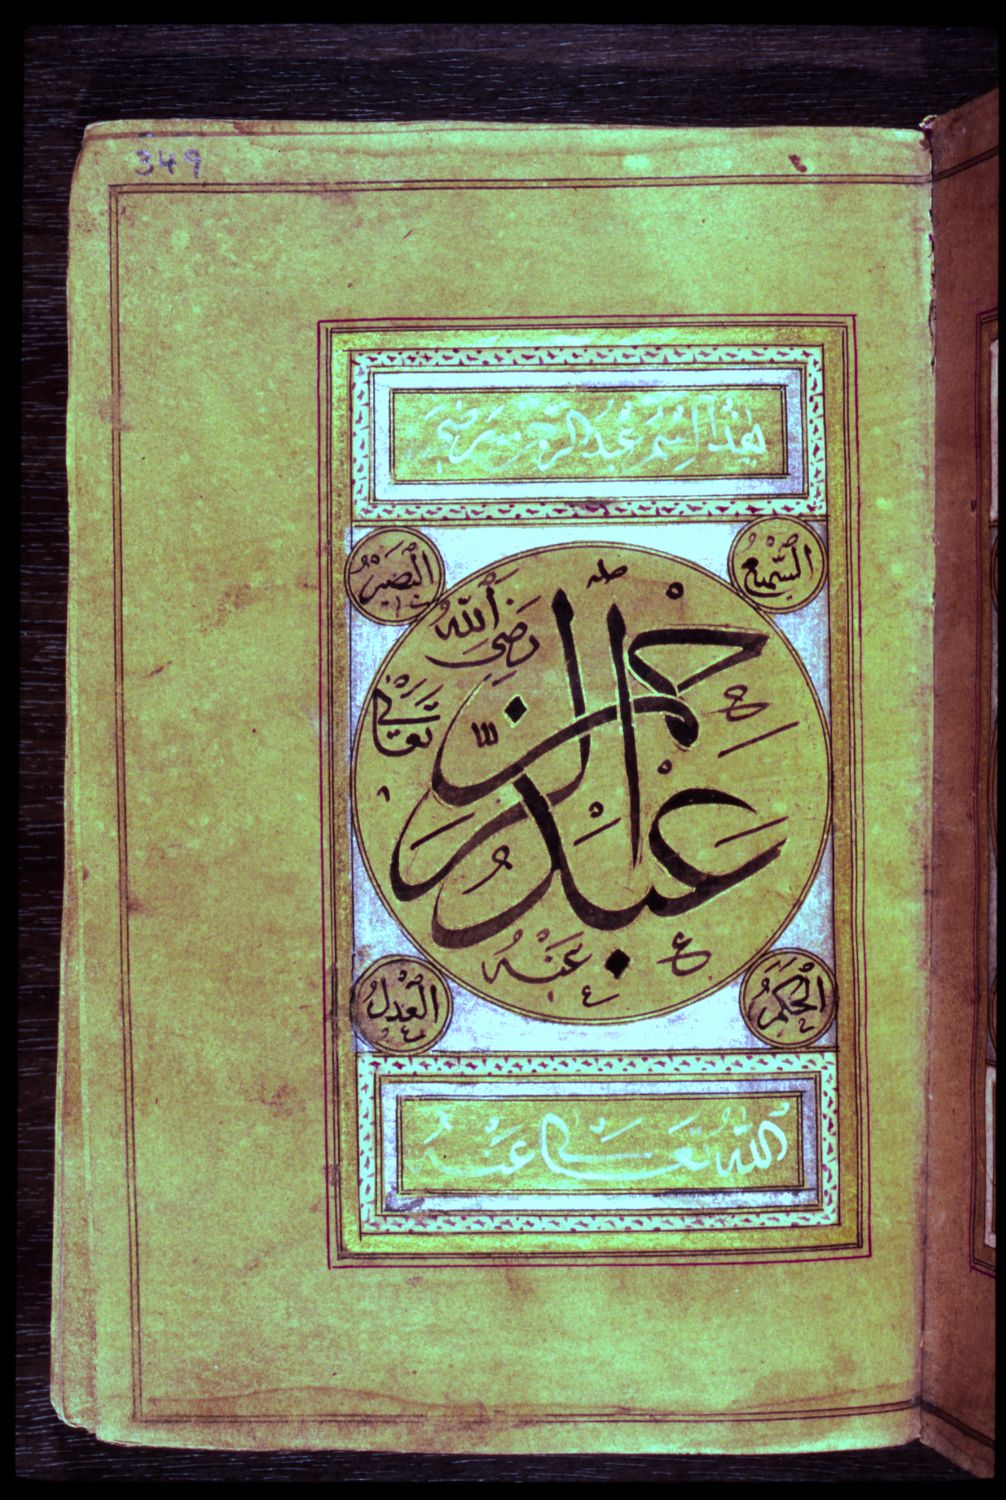 349
هٰذَا اِسْمُ عَبْدُ الرَّحْمٰن رَضِىَ
اَلسَّمِيعُ
اَلْبَصِيرُ
عَبْدُ الرَّحْمٰن
رَضِىَ اللّٰهُ
تَعَالٰى
عَنْهُ
اَلْحَكَمُ
اَلْعَدْلُ
اللّٰهُ تَعَالٰى عَنْهُ